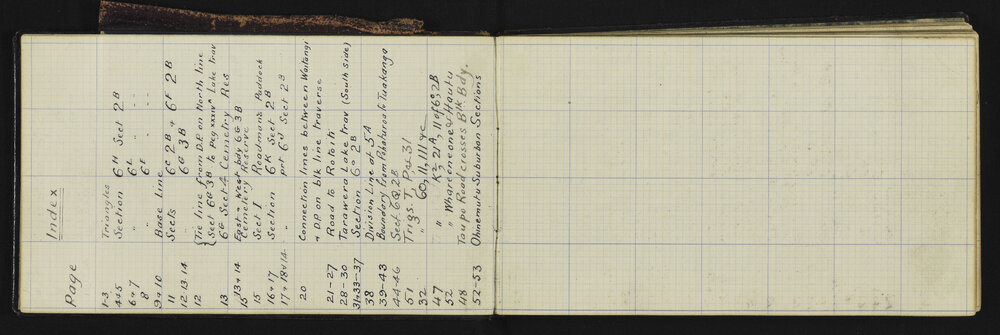 Index
Page
1-3 Triangles
4+5 Section 6H Sect 2B
6+7 " 6L "
8 " 6F "
9+10 Base Line
11 Sects 6C 2B + 6F 2B
12.13.14 " 6G 3B
12 {Tie line from D.P. on North line
{Sect 6G 3B to Peg XXXIVA Lake trav
13 6G Sect 4 Cemetry Res
13+14 East + West bdy 6G 3B
15 Cemetery Reserve
15 Sect 1 Roadmans Paddock
16+17 Section 6K Sect 2B
17+18+14 " prt 6J Sect 2B
20 Connection lines between Waitangi
+ D.P. on blk line traverse
21-27 Road to Rotoiti
28-30 Tarawera Lake trav (South side)
31+33-37 Section 6 2B
38 Division Line of 5A
39-43 Boundary from Pakaturoa to Tuakanga
44-46 Sect. 6Q, 2B
51 Trigs. T, P & 31
32 " 60, 11, 111 yc
47 " K2, 21A, 11 of 6, 2B
52 " Whareeneone & Hautu
48 Taupo Road crosses Blk. Bdy.
52-53 Ohinemutu Suburban Sections